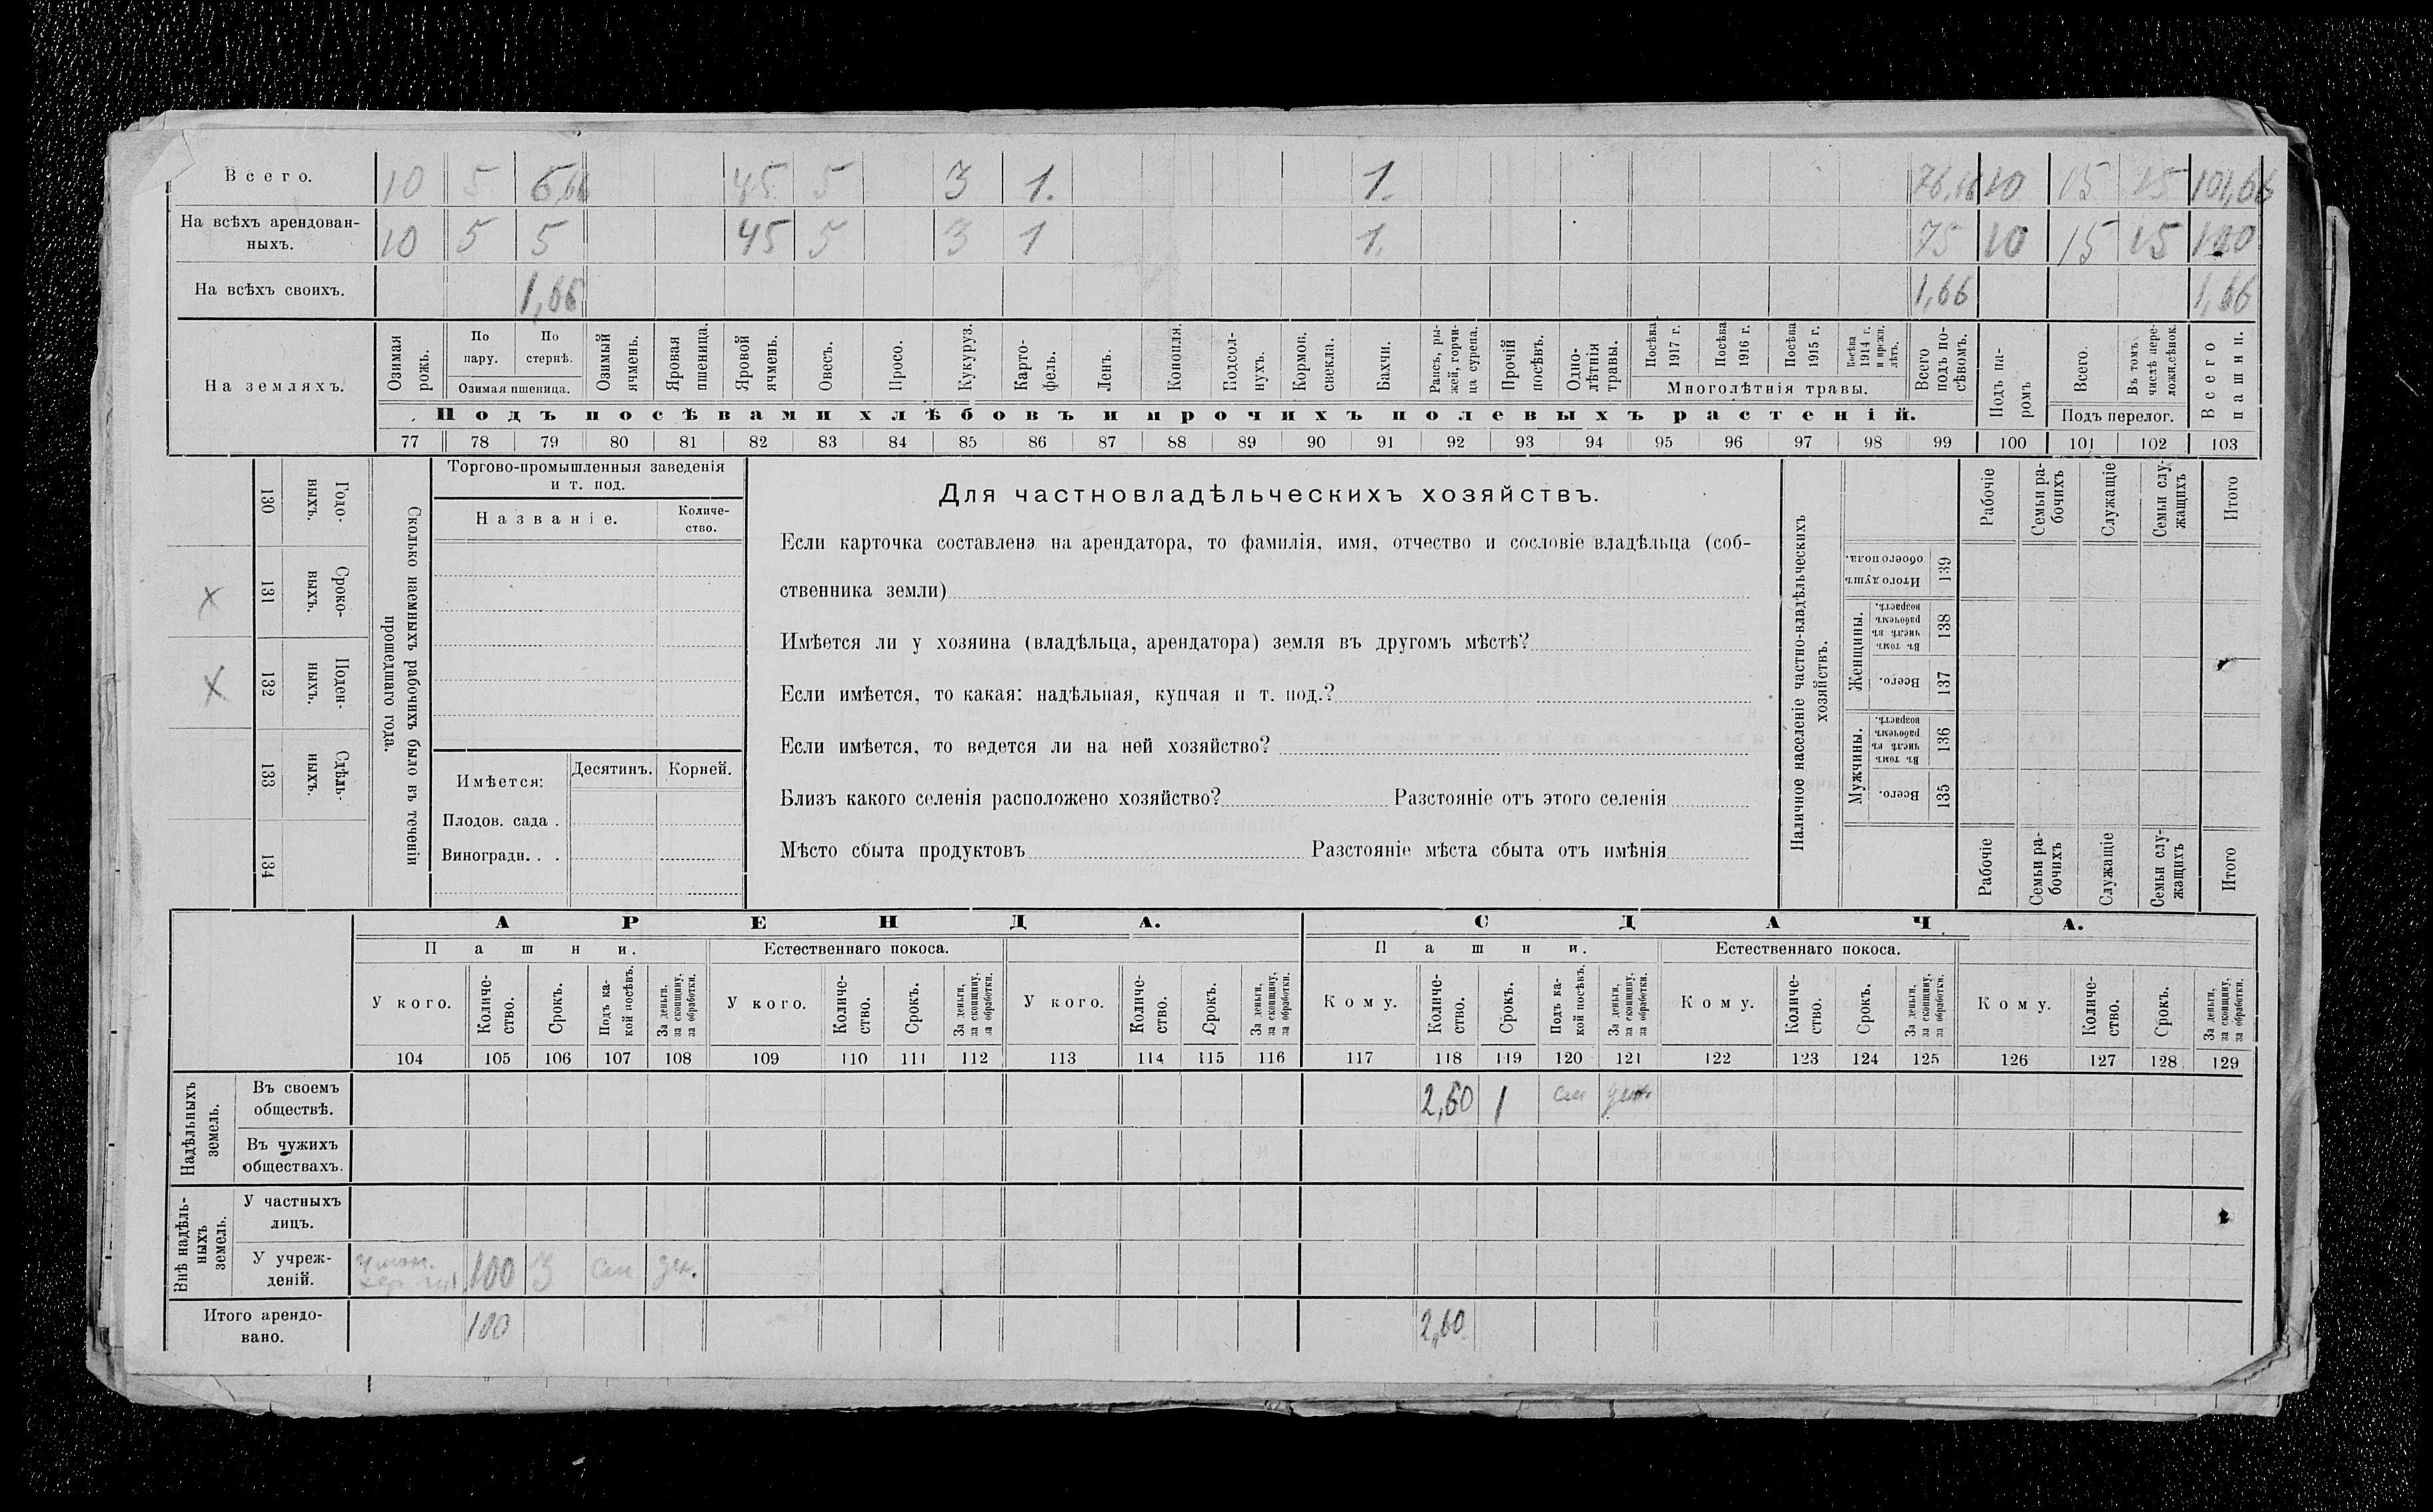 Всего. 10 5 6,66 45 5 3 1. 1. 76,66 10 15 15 101,66
На всѣхъ арендован-
ныхъ. 10 5 5 45 5 3 1 1. 75 10 15 15 100
На всѣхъ своихъ. 1,66 1,66 1,66
На земляхъ.
Озимая рожь.
По пару.
По стернѣ.
Озимая пшеница.
Озимый ячмень.
Яровая пшеница.
Яровой ячмень.
Овесъ.
Просо.
Кукуруз.
Карто-
фель.
Ленъ.
Конопля.
Подсол-
нухъ.
Кормов. свекла.
Бахчи.
Рапсъ, ры-
жей, горчи-
ца сурепа.
Прочій посѣвъ.
Одно-
лѣтнія травы.
Посѣва 1917 г.
Посѣва 1916 г.
Посѣва 1915 г.
Посѣва 1914 г. и прежн. лѣтъ.
Многолѣтнія травы.
Всего подъ по-
сѣвомъ.
Подъ па-
ромъ
Всего.
Въ томъ числѣ пере-
ложн. сѣнок.
Подъ перелог.
Всего пашни.
Подъ посѣвами хлѣбовъ и прочихъ полевыхъ растеній.
77 78 79 80 81 82 83 84 85 86 87 88 89 90 91 92 93 94 95 96 97 98 99 100 101 102 103
130 Годо-
ныхъ.
х 131 Сроко-
ныхъ.
х 132 Поден-
ныхъ.
133 Сдѣль-
ныхъ.
134
Сколько наемныхъ рабочихъ было въ теченіи
прошедшаго года.
Торгово-промышленныя заведенія
и т. под.
Названіе.
Количе-
ство.
Имѣется: Десятинъ. Корней.
Плодов. сада .
Виноградн. . .
Для частновладѣльческихъ хозяйствъ.
Если карточка составлена на арендатора, то фамилія, имя, отчество и сословіе владѣльца (соб-
ственника земли)
Имѣется ли у хозяина (владѣльца, арендатора) земля въ другомъ мѣстѣ?
Если имѣется, то какая: надѣльная, купчая и т. под.?
Если имѣется, то ведется ли на ней хозяйство?
Близъ какого селенія расположено хозяйство? Разстояніе отъ этого селенія
Мѣсто сбыта продуктовъ Разстояніе мѣста сбыта отъ имѣнія
Наличное населеніе частно-владѣльческихъ
хозяйствъ.
Рабочіе
Семьи ра-
бочихъ
Служащіе
Семьи слу-
жащихъ
Итого
Итого душъ обоего пола. 139
Женщины.
Въ томъ числѣ въ рабочемъ возрастѣ. 138
Всего. 137
Мужчины.
Въ томъ числѣ въ рабочемъ возрастѣ. 136
Всего. 135
Рабочіе
Семьи ра-
бочихъ
Служащіе
Семьи слу-
жащихъ
Итого
АРЕНДА. СДАЧА.
Пашни. Естественнаго покоса. Пашни. Естественнаго покоса.
У кого.
Количе-
ство.
Срокъ.
Подъ ка-
кой посѣвъ.
За деньги, за скопщину, за обработки.
У кого.
Количе-
ство.
Срокъ.
За деньги, за скопщину, за обработки.
У кого.
Количе-
ство.
Срокъ.
За деньги, за скопщину, за обработки.
Кому.
Количе-
ство.
Срокъ.
Подъ ка-
кой посѣвъ.
За деньги, за скопщину, за обработки.
Кому.
Количе-
ство.
Срокъ.
За деньги, за скопщину, за обработки.
Кому.
Количе-
ство.
Срокъ.
За деньги, за скопщину, за обработки.
104 105 106 107 108 109 110 111 112 113 114 115 116 117 118 119 120 121 122 123 124 125 126 127 128 129
Надѣльныхъ
земель.
Въ своемъ
обществѣ. 2,60 1
Въ чужихъ
обществахъ.
Внѣ надѣль-
ныхъ
земель.
У частныхъ
лицъ.
У учреж-
деній. 100 3 ден.
Итого арендо-
вано. 100 2,60